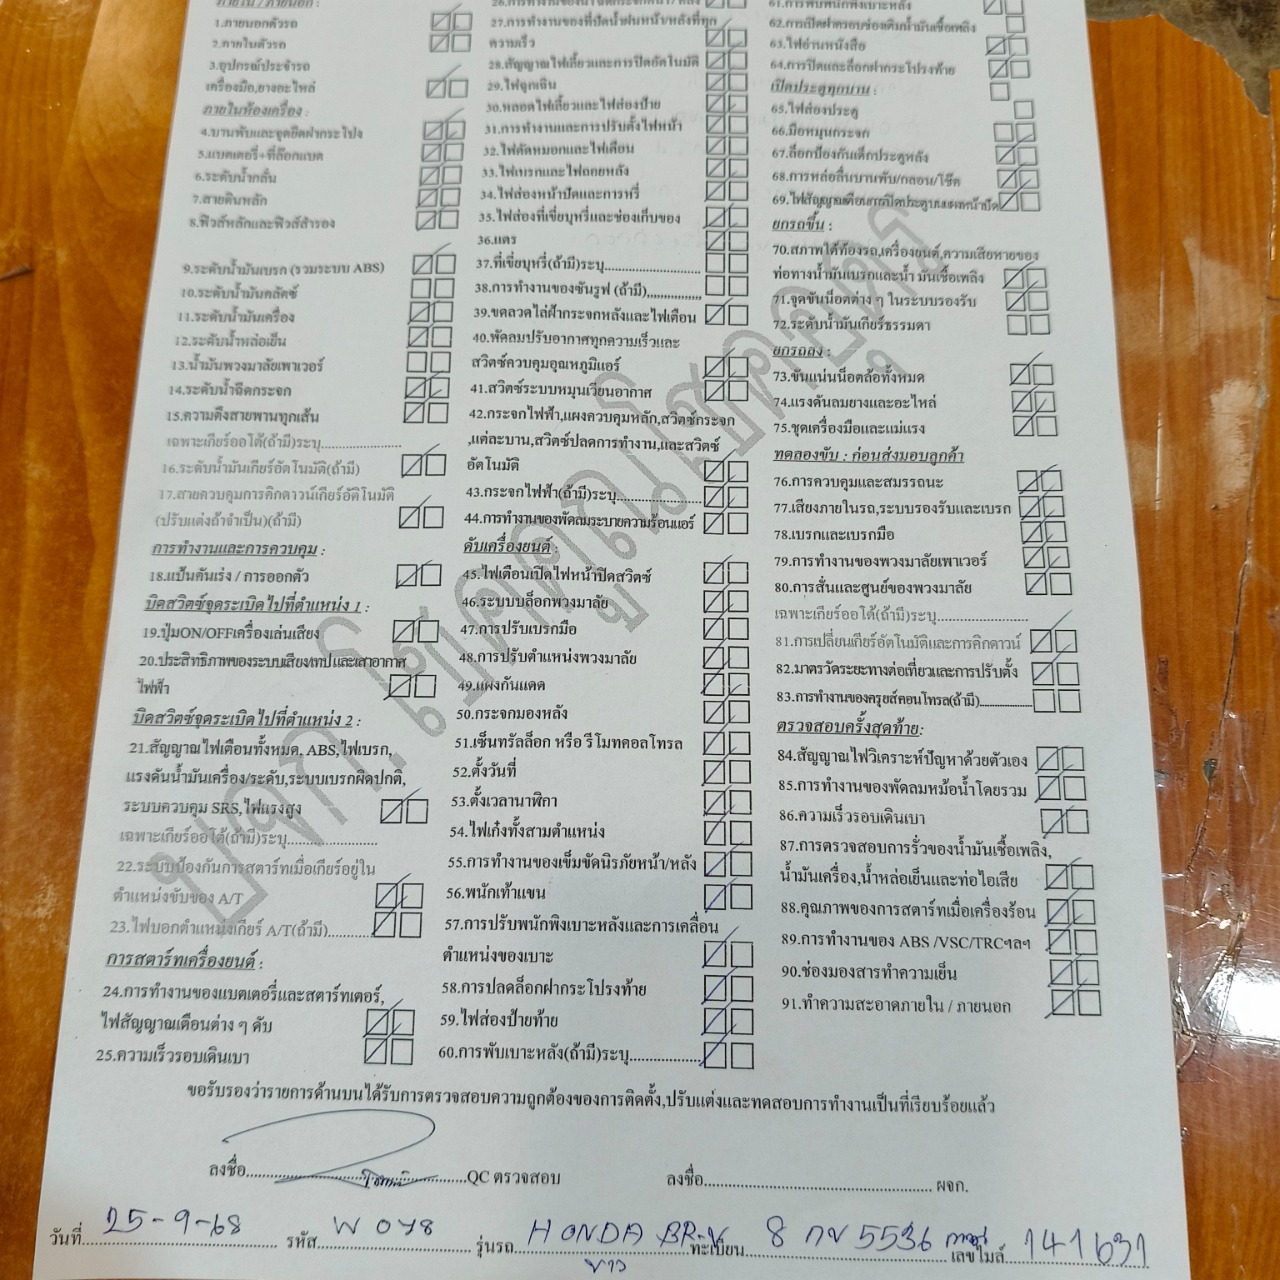 ภายใน / ภายนอก :
1.ภายนอกตัวรถ
2.ภายในตัวรถ
3.อุปกรณ์ประจำรถ
เครื่องมือ,ยางอะไหล่
ภายในห้องเครื่อง :
4.บานพับและจุดยึดฝากระโปง
5.แบตเตอรี่+ที่ล๊อกแบต
6.ระดับน้ำกลั่น
7.สายดินหลัก
8.ฟิวส์หลักและฟิวส์สำรอง
9.ระดับน้ำมันเบรก (รวมระบบ ABS)
10.ระดับน้ำมันคลัตช์
11.ระดับน้ำมันเครื่อง
12.ระดับน้ำหล่อเย็น
13.น้ำมันพวงมาลัยเพาเวอร์
14.ระดับน้ำฉีดกระจก
15.ความตึงสายพานทุกเส้น
เฉพาะเกียร์ออโต้(ถ้ามี)ระบุ....................
16.ระดับน้ำมันเกียร์อัตโนมัติ(ถ้ามี)
17.สายควบคุมการคิกดาวน์เกียร์อัติโนมัติ
(ปรับแต่งถ้าจำเป็น)(ถ้ามี)
การทำงานและการควบคุม :
18.แป้นคันเร่ง / การออกตัว
บิดสวิตช์จุดระเบิดไปที่ตำแหน่ง 1 :
19.ปุ่มON/OFFเครื่องเล่นเสียง
20.ประสิทธิภาพของระบบเสียง/เทป และเสาอากาศ
ไฟฟ้า
บิดสวิตช์จุดระเบิดไปที่ตำแหน่ง 2 :
21.สัญญาณไฟเตือนทั้งหมด, ABS,ไฟเบรก,
แรงดันน้ำมันเครื่อง/ระดับ,ระบบเบรกผิดปกติ,
ระบบควบคุม SRS,ไฟแรงสูง
เฉพาะเกียร์ออโต้(ถ้ามี)ระบุ........................
22.ระบบป้องกันการสตาร์ทเมื่อเกียร์อยู่ใน
ตำแหน่งขับของ A/T
23.ไฟบอกตำแหน่งเกียร์ A/T(ถ้ามี)...........
การสตาร์ทเครื่องยนต์ :
24.การทำงานของแบตเตอรี่และสตาร์ทเตอร์,
ไฟสัญญาณเตือนต่าง ๆ ดับ
25.ความเร็วรอบเดินเบา
27.การทำงานของที่ปัดน้ำฝนหน้า/หลังที่ทุก
ความเร็ว
28.สัญญาณไฟเลี้ยวและการปิดอัตโนมัติ
29.ไฟฉุกเฉิน
30.หลอดไฟเลี้ยวและไฟส่องป้าย
31.การทำงานและการปรับตั้งไฟหน้า
32.ไฟตัดหมอกและไฟเตือน
33.ไฟเบรกและไฟถอยหลัง
34.ไฟส่องหน้าปัดและการหรี่
35.ไฟส่องที่เขี่ยบุหรี่และช่องเก็บของ
36.แตร
37.ที่เขี่ยบุหรี่(ถ้ามี)ระบุ........................
38.การทำงานของซันรูฟ (ถ้ามี)..............
39.ขดลวดไล่ฝ้ากระจกหลังและไฟเตือน
40.พัดลมปรับอากาศทุกความเร็วและ
สวิตช์ควบคุมอุณหภูมิแอร์
41.สวิตช์ระบบหมุนเวียนอากาศ
42.กระจกไฟฟ้า,แผงควบคุมหลัก,สวิตช์กระจก
,แต่ละบาน,สวิตช์ปลดการทำงาน,และสวิตช์
อัตโนมัติ
43.กระจกไฟฟ้า(ถ้ามี)ระบุ.....................
44.การทำงานของพัดลมระบายความร้อนแอร์
ดับเครื่องยนต์ :
45.ไฟเตือนเปิดไฟหน้าปิดสวิตช์
46.ระบบบล็อกพวงมาลัย
47.การปรับเบรกมือ
48.การปรับตำแหน่งพวงมาลัย
49.แผงกันแดด
50.กระจกมองหลัง
51.เซ็นทรัลล็อก หรือ รีโมทคอลโทรล
52.ตั้งวันที่
53.ตั้งเวลานาฬิกา
54.ไฟเก๋งทั้งสามตำแหน่ง
55.การทำงานของเข็มขัดนิรภัยหน้า/หลัง
56.พนักเท้าแขน
57.การปรับพนักพิงเบาะหลังและการเคลื่อน
ตำแหน่งของเบาะ
58.การปลดล็อกฝากระโปรงท้าย
59.ไฟส่องป้ายท้าย
60.การพับเบาะหลัง(ถ้ามี)ระบุ..................
61.การพับพนักพิงเบาะหลัง
62.การเปิดฝาครอบช่องเติมน้ำมันเชื้อเพลิง
63.ไฟอ่านหนังสือ
64.การปิดและล็อกฝากระโปรงท้าย
เปิดประตูทุกบาน :
65.ไฟส่องประตู
66.มือหมุนกระจก
67.ล็อกป้องกันเด็กประตูหลัง
68.การหล่อลื่นบานพับ/กลอน/โช๊ค
69.ไฟสัญญาณเตือนการปิดประตูบนแผงหน้าปัด
ยกรถขึ้น :
70.สภาพใต้ท้องรถ,เครื่องยนต์,ความเสียหายของ
ท่อทางน้ำมันเบรกและน้ำ มันเชื้อเพลิง
71.จุดขันน็อตต่าง ๆ ในระบบรองรับ
72.ระดับน้ำมันเกียร์ธรรมดา
ยกรถลง :
73.ขันแน่นน็อตล้อทั้งหมด
74.แรงดันลมยางและอะไหล่
75.ชุดเครื่องมือและแม่แรง
ทดลองขับ : ก่อนส่งมอบลูกค้า
76.การควบคุมและสมรรถนะ
77.เสียงภายในรถ,ระบบรองรับและเบรก
78.เบรกและเบรกมือ
79.การทำงานของพวงมาลัยเพาเวอร์
80.การสั่นและศูนย์ของพวงมาลัย
เฉพาะเกียร์ออโต้(ถ้ามี)ระบุ.................
81.การเปลี่ยนเกียร์อัตโนมัติและการคิกดาวน์
82.มาตรวัดระยะทางต่อเที่ยวและการปรับตั้ง
83.การทำงานของครุยส์คอนโทรล(ถ้ามี)..................
ตรวจสอบครั้งสุดท้าย:
84.สัญญาณไฟวิเคราะห์ปัญหาด้วยตัวเอง
85.การทำงานของพัดลมหม้อน้ำโดยรวม
86.ความเร็วรอบเดินเบา
87.การตรวจสอบการรั่วของน้ำมันเชื้อเพลิง,
น้ำมันเครื่อง,น้ำหล่อเย็นและท่อไอเสีย
88.คุณภาพของการสตาร์ทเมื่อเครื่องร้อน
89.การทำงานของ ABS /VSC/TRCฯลฯ
90.ช่องมองสารทำความเย็น
91.ทำความสะอาดภายใน / ภายนอก
ขอรับรองว่ารายการด้านบนได้รับการตรวจสอบความถูกต้องของการติดตั้ง,ปรับแต่งและทดสอบการทำงานเป็นที่เรียบร้อยแล้ว
ลงชื่อ..................QC ตรวจสอบ ลงชื่อ.................. ผจก.
วันที่ 25-9-68 รหัส W 078 รุ่นรถ HONDA BR-V ทะเบียน 8 กข 5536 เลขไมล์ 141631
ขาว